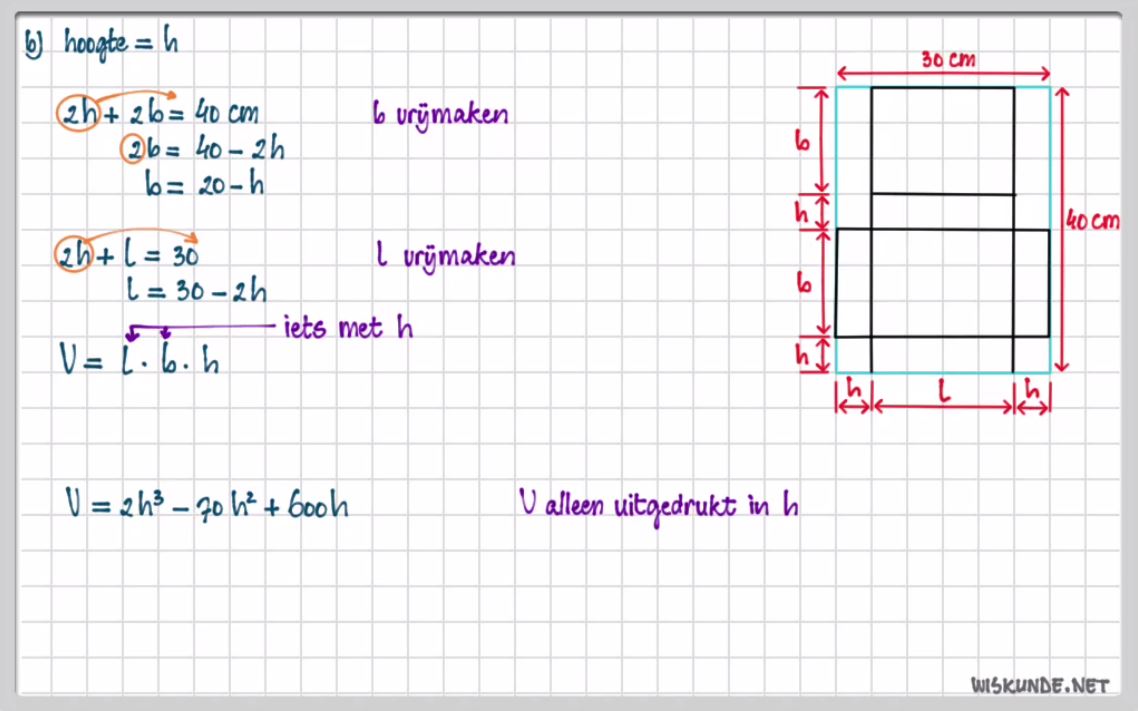 b) hoogte = h
2h + 2b = 40 cm
b vrijmaken
2b = 40 - 2h
b = 20 - h
2h + l = 30
l vrijmaken
l = 30 - 2h
iets met h
V = l · b · h
V = 2h³ - 70h² + 600h
V alleen uitgedrukt in h
30 cm
b
h
40 cm
b
h
h l h
WISKUNDE.NET